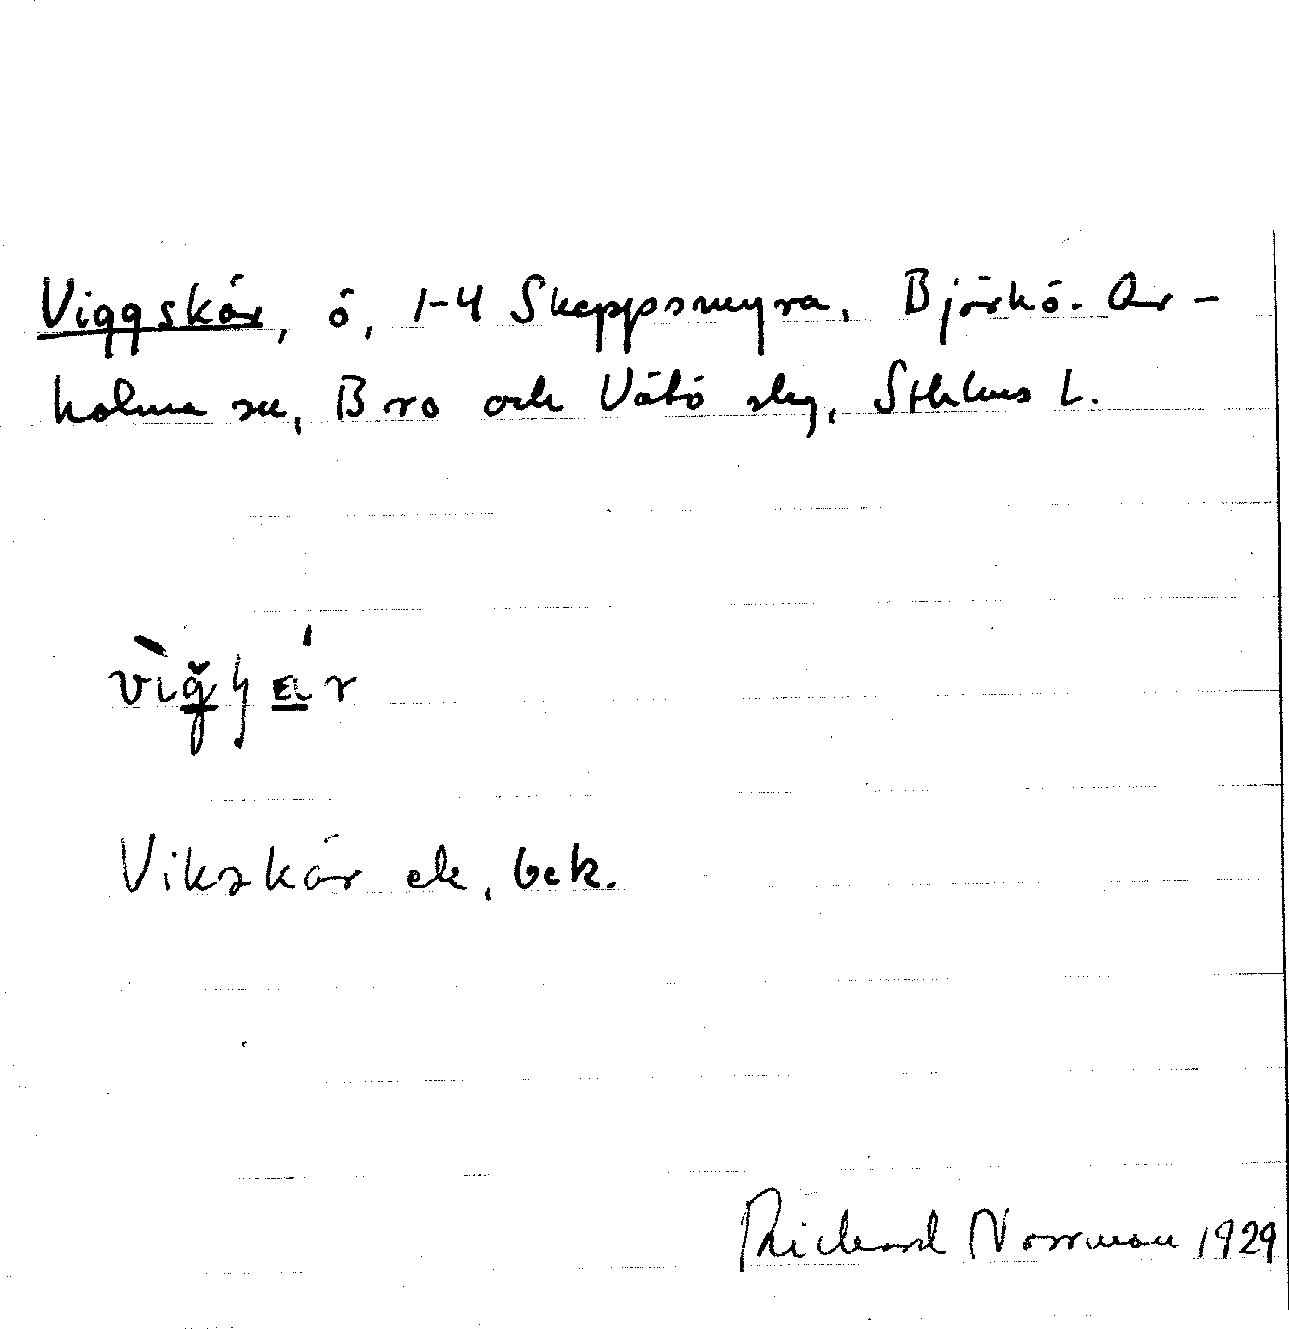 Viggskär, ö, 1-4 Skeppsmyra, Björkö-Ar-
holma sn, Bro och Vätö skg, Sthlms L.
Vikskär ek, bek.
Richard Norrman 1929